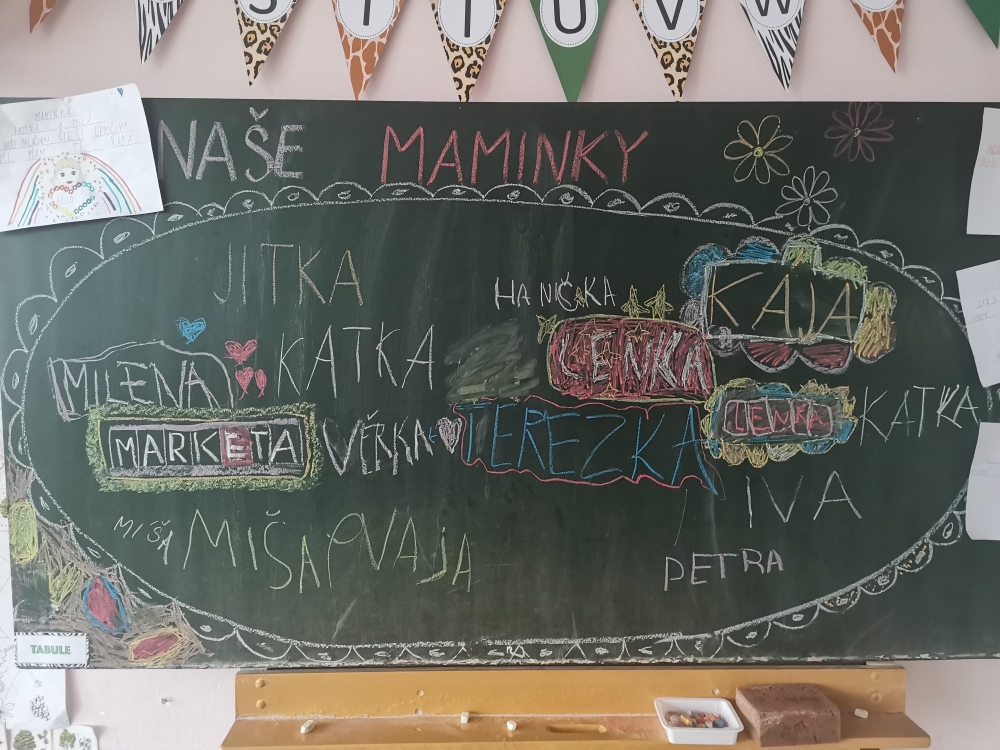 S T I U V W
NAŠE MAMINKY
MAMINKA
JITKA
HANIČKA
KAJA
KATKA
LENKA
MILENA
MARKETA
VĚRKA
TEREZKA
LENKA
KATKA
IVA
MIŠA
MIŠA
PETRA
TABULE